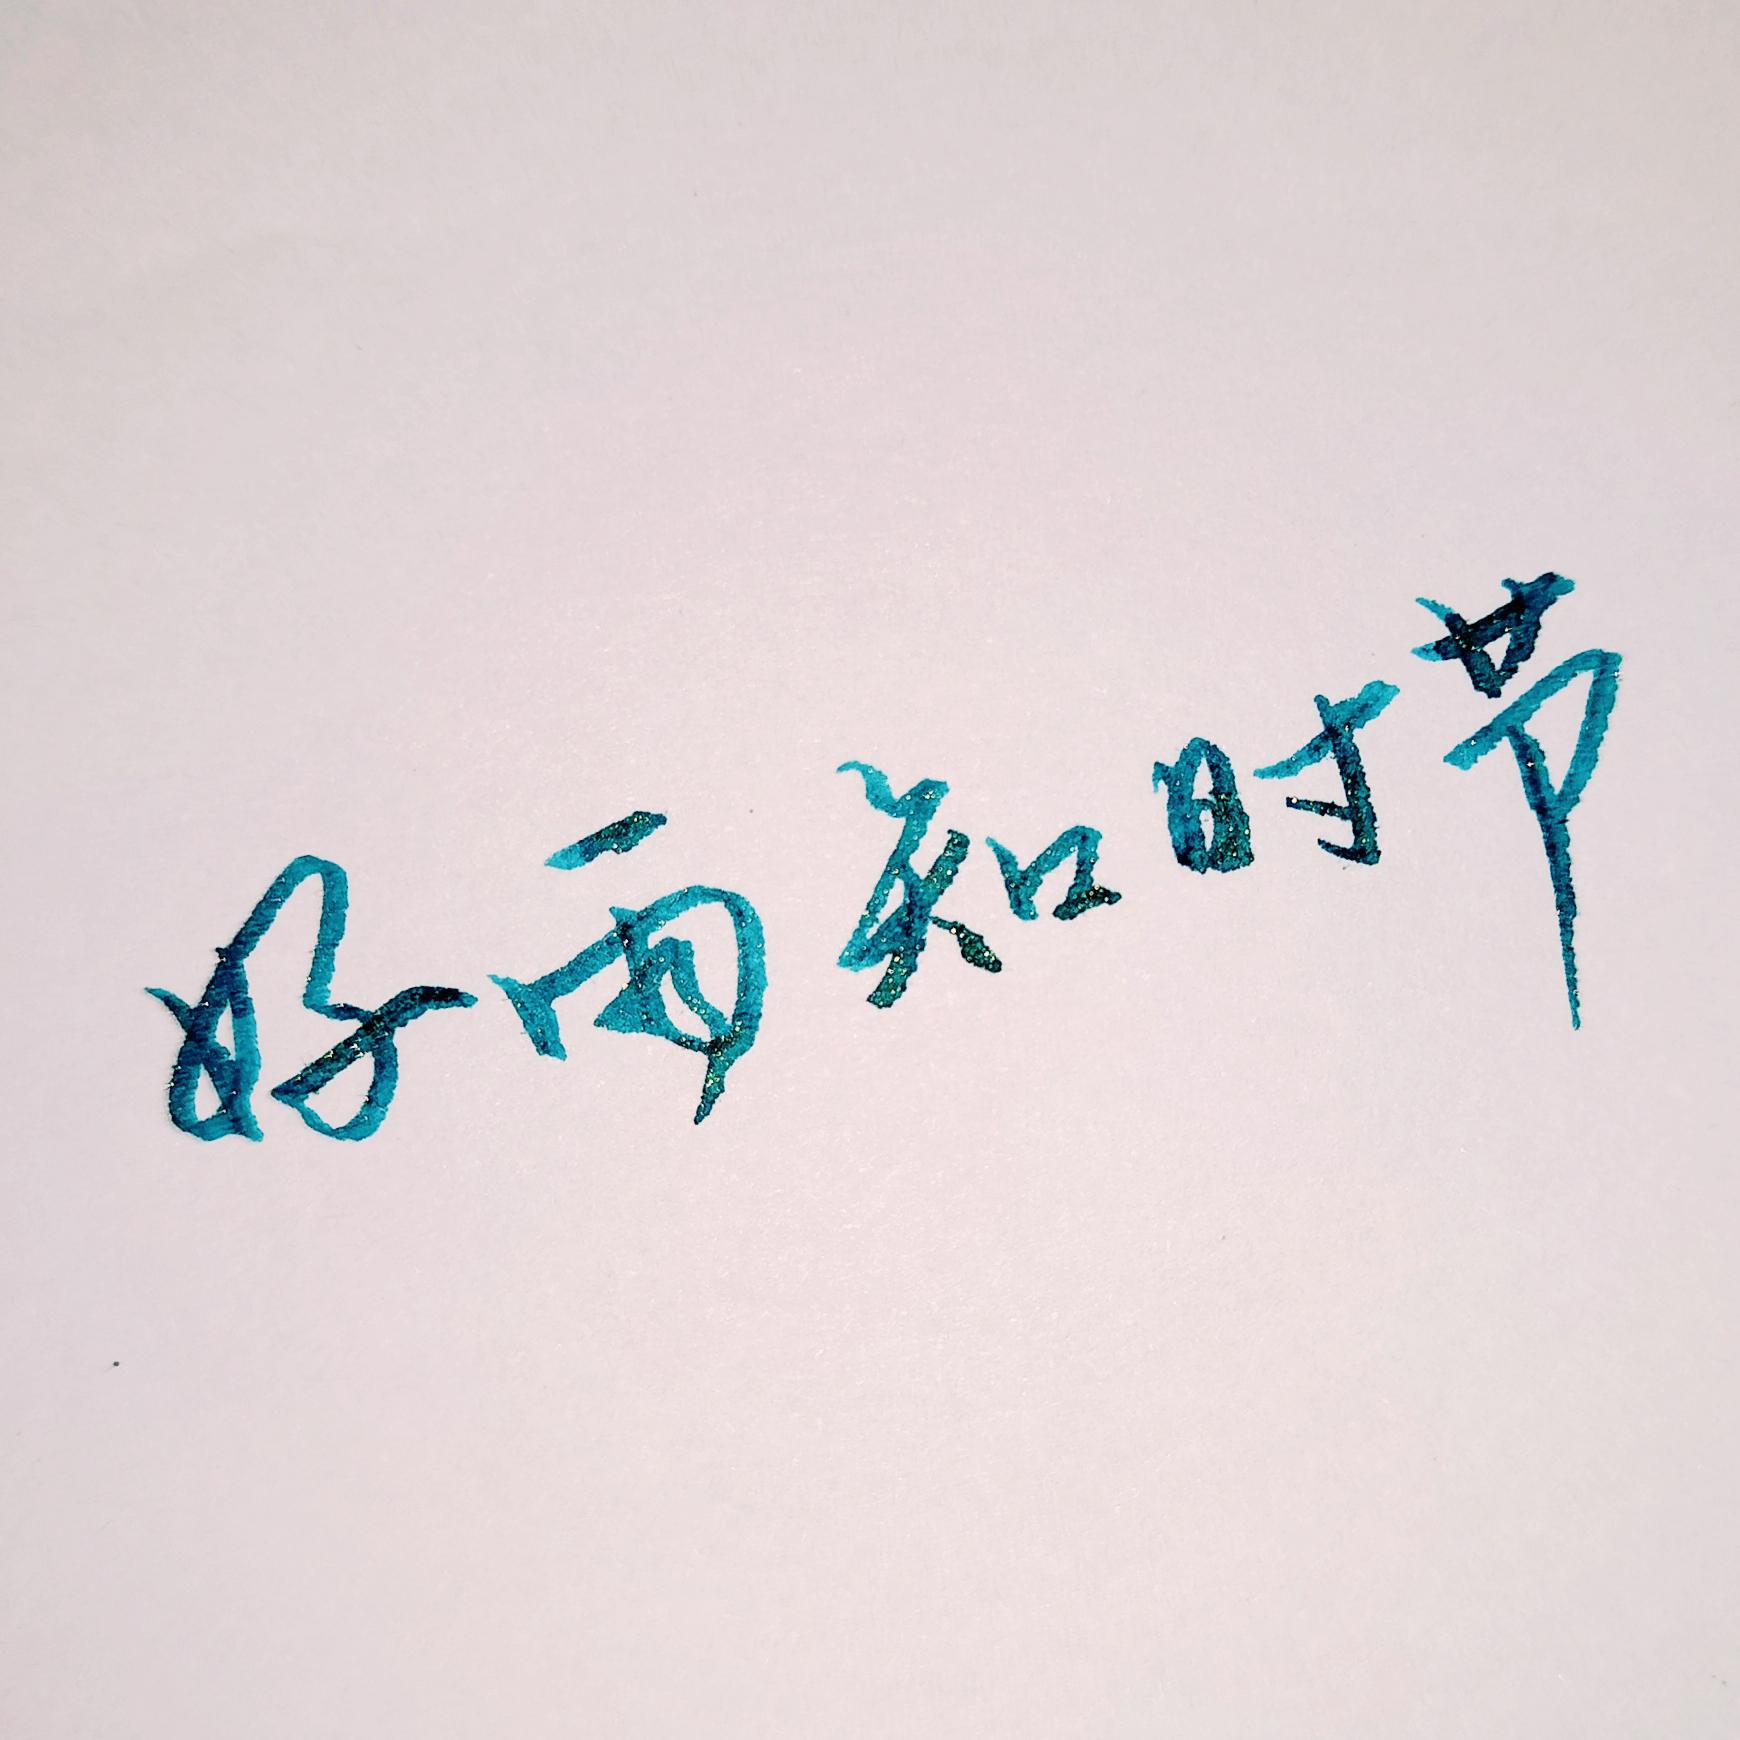 好雨知时节